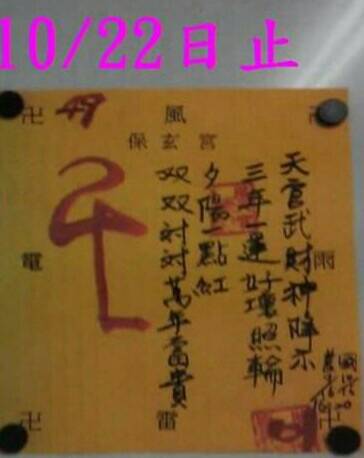 10/22日止
卍 49 風 卍
保玄宮
天官武財神降示
三年一運好壞照輪
夕陽一點紅
双双対対萬年富貴
電
雨
卍 雷 卍